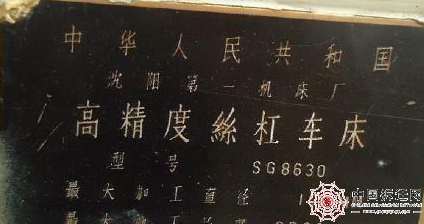 中华人民共和国
沈阳第一机床厂
高精度絲杠车床
型号 SG8630
最大加工直径
最大工
中国标证网